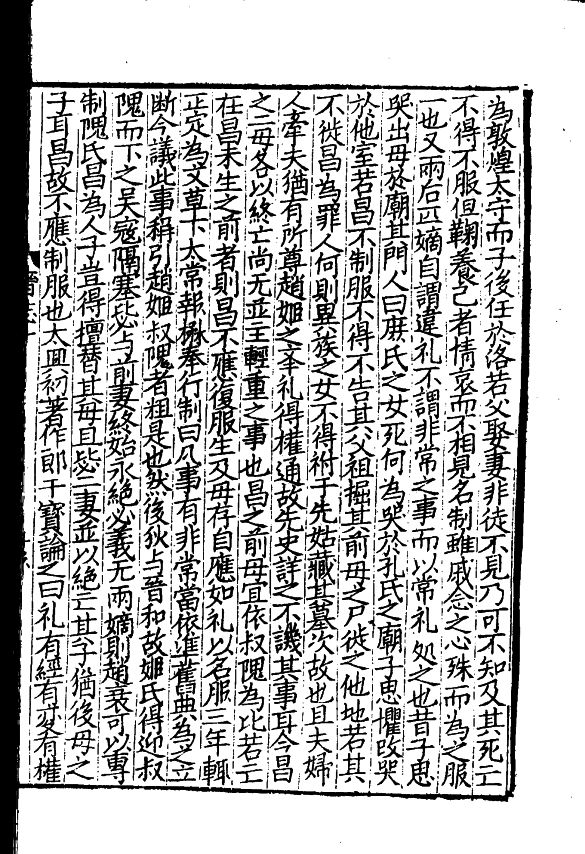 為敦煌太守而子後任於洛若父娶妻非徒不見乃可不知及其死亡
不得不服但鞠養己者情哀而不相見名制雖戚念之心殊而為之服
一也又兩后匹嫡自謂違礼不謂非常之事而以常礼処之也昔子思
哭出母於廟其門人曰庶氏之女死何為哭於孔氏之廟子思懼改哭
於他室若昌不制服不得不告其父祖掘其前母之尸徙之他地若其
不徙昌為罪人何則異族之女不得祔于先姑藏其墓次故也且夫婦
人牽夫猶有所尊趙姬之举礼得權通故先史詳之不譏其事耳今昌
之二母各以終亡尚无並主輕重之事也昌之前母宜依叔隗為比若亡
在昌未生之前者則昌不應復服生及母存自應如礼以名服三年輒
正定為文草下太常報楙奉行制曰凡事有非常當依準舊典為之立
断今議此事称引趙姬叔隗者粗是也然後狄与晋和故姬氏得迎叔
隗而下之吴寇隔塞毖与前妻終始永絶必義无兩嫡則趙衰可以專
制隗氏昌為人子豈得擅替其母且毖二妻並以絶亡其子猶後母之
子耳昌故不應制服也太興初著作郎干寶論之曰礼有經有変有權